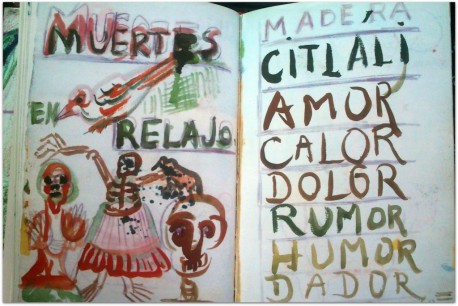 MUERTES
EN
RELAJO
MADERA
CITLALi
AMOR
CALOR
DOLOR
RUMOR
HUMOR
DADOR